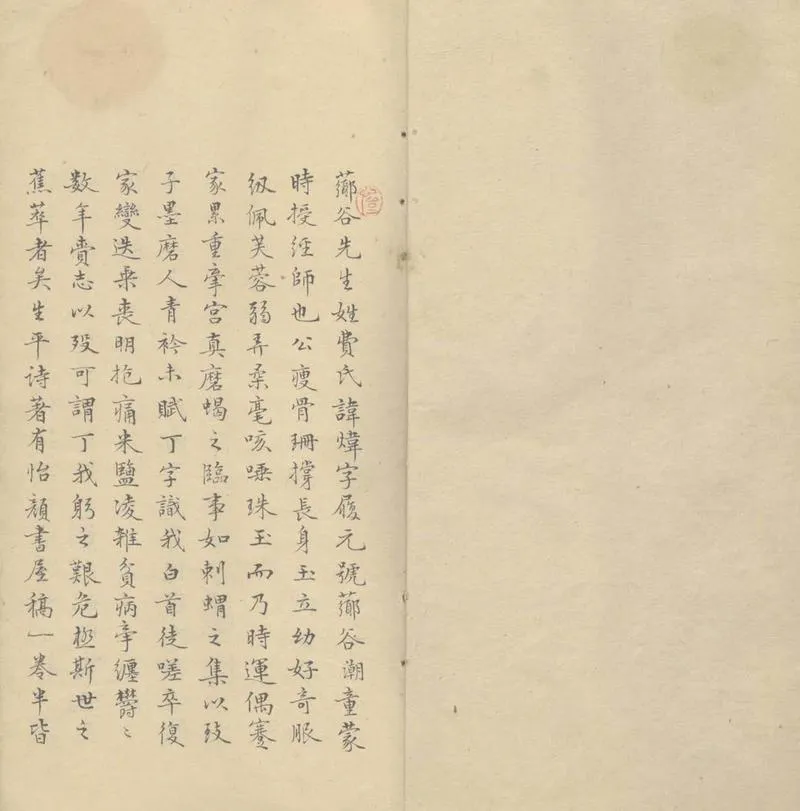 薌谷先生姓費氏諱煒字履元號薌谷潮童蒙
時授經師也公瘦骨珊撐長身玉立幼好奇服
紉佩芙蓉弱弄柔毫咳唾珠玉而乃時運偶蹇
家累重牽宮真磨蝎之臨事如刺蝟之集以致
子墨磨人青衿未賦丁字識我白首徒嗟卒復
家變迭乘喪明抱痛米鹽凌雜貧病牽纏欝〻
数年賫志以歿可謂丁我躬之艱危極斯世之
蕉萃者矣生平诗著有怡顏書屋稿一卷半皆